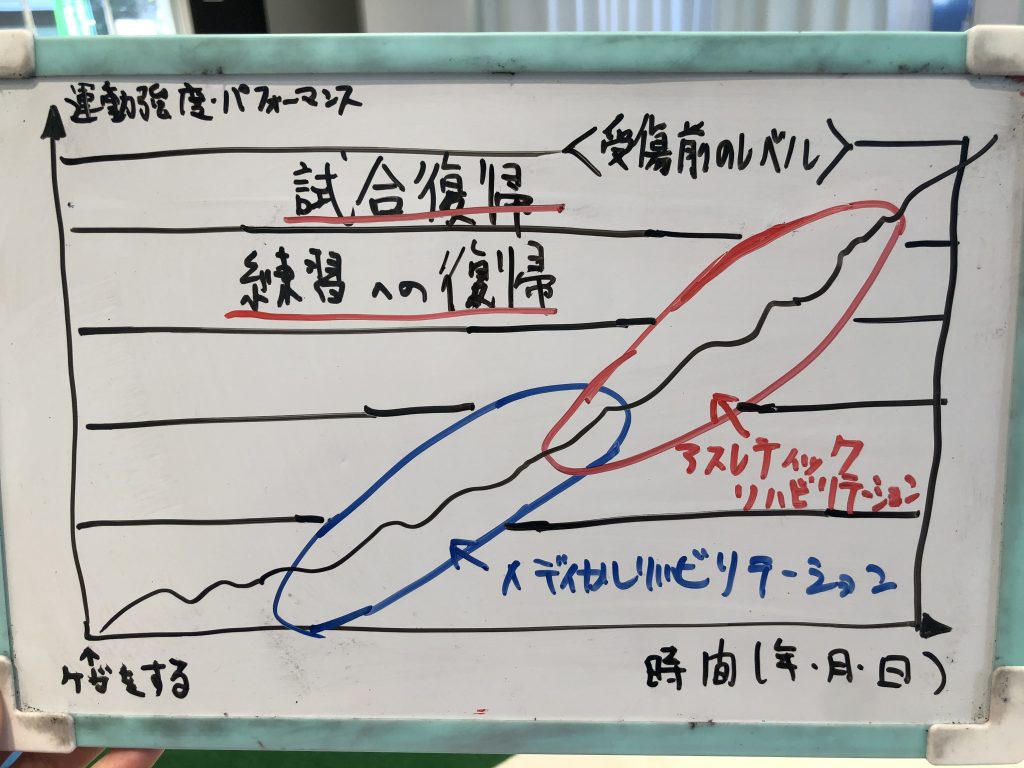 運動強度・パフォーマンス
〈受傷前のレベル〉
試合復帰
練習への復帰
アスレティック
リハビリテーション
メディカルリハビリテーション
ケガをする
時間(年・月・日)